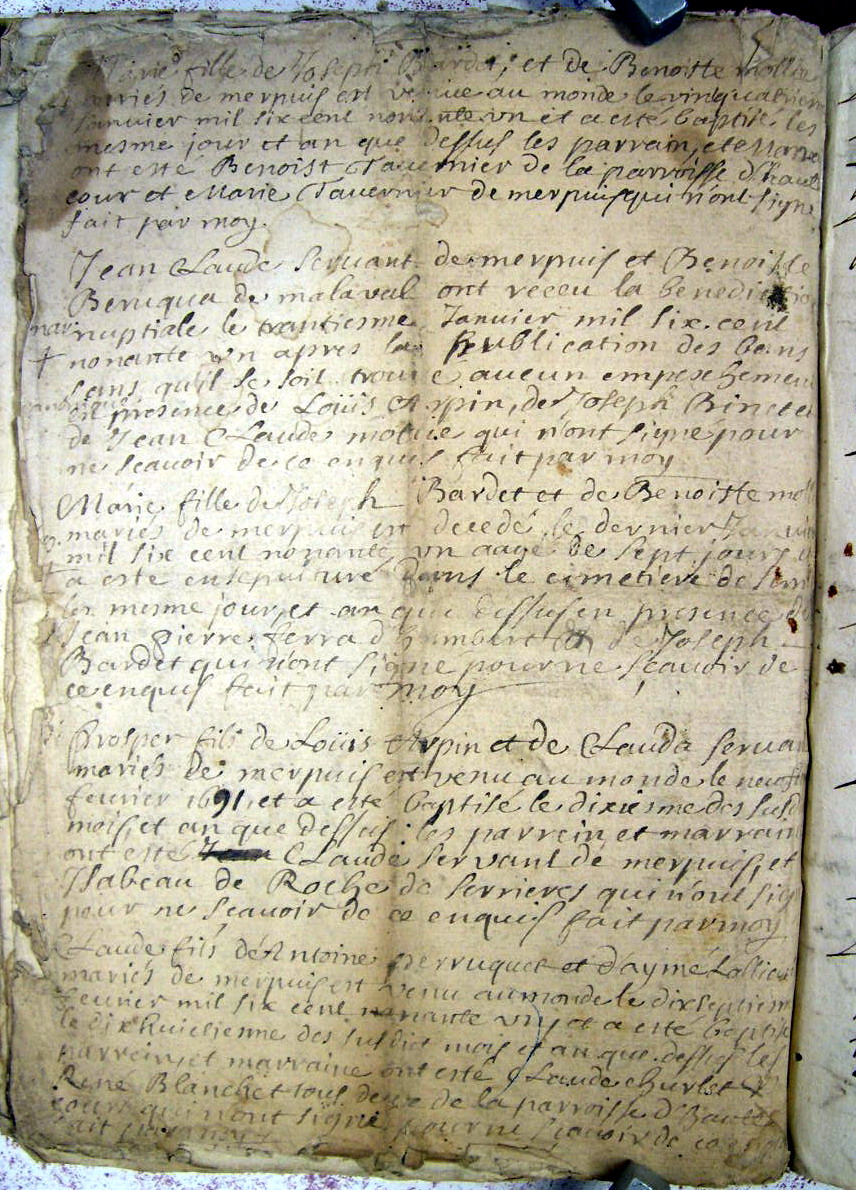 Marie fille de Joseph Bardet, et de Benoitte mollie
mariés de merpuis est venue au monde le vinquatriem
Januier mil six cent nonante vn et a esté baptisé les
mesme jour et an que dessus les parrain, et marra
ont esté Benoist Tauernier de la parroisse d'haute
cour et Marie Tauernier de merpuis qui n'ont signé
fait par moy.
Jean Claude seruant de merpuis et Benoitte
de malaval ont receu la benedictio
nar nuptiale le trantiesme Januier mil six cent
nonante vn apres la publication des bans
sans qu'il se soit trouué aucun empeschemen
en presence de Loüis Arpin, de Joseph Binet et
de Jean Claude mollie qui n'ont signé pour
ne scauoir de ce enquis fait par moy
Marie fille de Joseph Bardet et de Benoitte mol
mariés de merpuis est decedé le dernier Januie
mil six cent nonante vn aagé de sept jours et
a esté ensepulturé dans le cimetiere de
les mesme jour, et an que dessus en presence de
Jean pierre ferra d'humbert et de Joseph
Bardet qui n'ont signé pour ne scauoir de
ce enquis fait par moy
Prosper fils de Loüis Arpin et de Clauda serua
mariés de merpuis est venu au monde le neuf
feurier 1691, et a esté baptisé le dixiesme des susd
mois, et an que dessus : les parrein et marrain
ont esté Claude servant de merpuis, et
Isabeau de Roche de serrieres qui n'ont sig
pour ne scauoir de ce enquis fait par moy
Claude fils de Antoine perruquet et d'aymé Lollier
mariés de merpuis est venu au monde le dixseptiem
feurier mil six cent nonante vn, et a esté baptisé
le dix huictienme des susdict mois et an que dessus les
parrein, et marraine ont esté Claude
René Blanchet tous deux de la parroisse d'haute
court qui n'ont signé pour ne scauoir de ce enquis
fait par moy